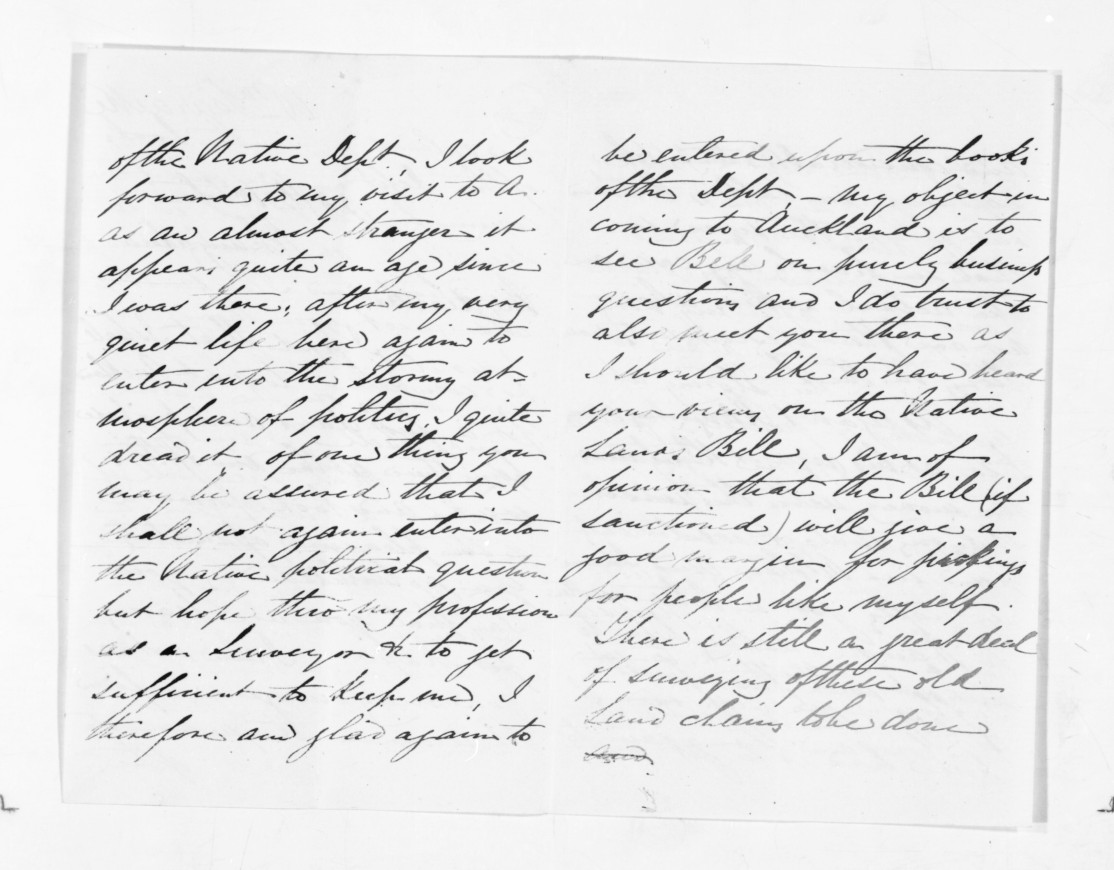 of the Native Dept, I look
forward to my visit to A.
as an almost stranger it
appears quite an age since
I was there; after my very
quiet life here again to
enter into the stormy at-
mosphere of politics, I quite
dread it of one thing you
may be assured that I
shall not again enter into
the Native political question
but hope thro my profession
as a Surveyor & to get
sufficient to keep me, I
therefore am glad again to
be entered upon the books
of the Dept, - my object in
coming to Auckland is to
see Bell on purely business
questions and I do trust to
also meet you there as
I should like to have heard
your views on the Native
Lands Bill, I am of
opinion that the Bill (if
sanctioned) will give a
good margin for pickings
for people like myself.
There is still a great deal
of surveying of these old
Land claims to be done
and